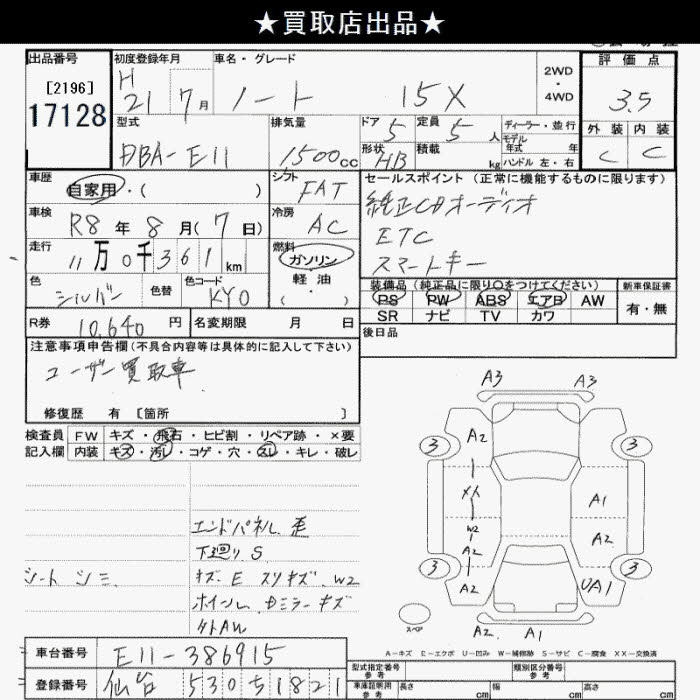 ★買取店出品★
出品番号
[2196]
17128
初度登録年月
H 21 7月
車名・グレード
ノート 15X
2WD
・
4WD
評価点
3.5
型式
DBA-E11
排気量
1500cc
ドア 5
定員 5人
ディーラー・並行
モデル年式 年
形状 HB
積載 kg
ハンドル 左・右
外装 内装
C C
車歴
自家用・( )
シフト
FAT
セールスポイント (正常に機能するものに限ります)
純正CDオーディオ
ETC
スマートキー
車検
R8年8月(7日)
冷房
AC
走行
11万0千361km
燃料
ガソリン
軽・油
( )
色
シルバー
色替
色コード
KY0
装備品 (純正品に限り○をつけてください)
PS PW ABS エアB AW
SR ナビ TV カワ
新車保証書
有・無
R券 10,640円
名変期限 月 日
後日品
注意事項申告欄(不具合内容等は具体的に記入して下さい)
ユーザー買取車
修復歴 有 [箇所 ]
検査員
記入欄
FW キズ・飛石・ヒビ割・リペア跡・×要
内装 キズ・汚レ・コゲ・穴・スレ・キレ・破レ
エンドパネル歪
下廻りS
シートシミ
キズ E スリキズ W2
ホイール、ドミラーキズ
外AW
A3 A3
3 A2 3
メ人 A1
W2
A2 A2
3 A2 UA1 3
スペア
A2 A1
A-キズ E-エクボ U-凹み W-補修跡 S-サビ C-腐食 XX-交換済
車台番号 E11-386915
登録番号 仙台 530 ち 1821
型式指定番号
参考
類別区分番号
参考
車庫証明用
参考
長さ cm
幅 cm
高さ cm